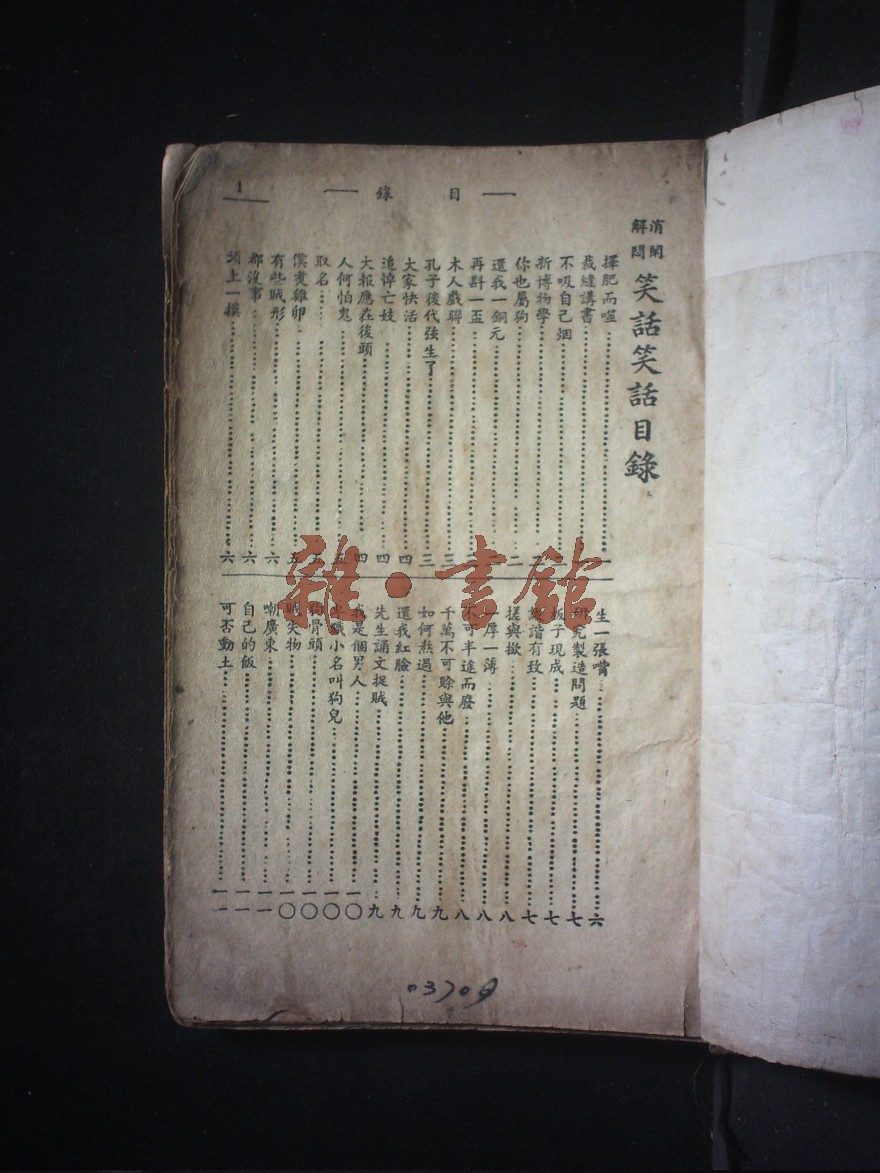 目錄
1
消閑解悶
笑話笑話目錄
擇肥而噬……一
裁縫講書
不吸自己烟
新博物學
你也屬狗……二
還我一銅元
再斟一盃
木人戲聯……三
孔子後代強生了……三
大家快活……四
追悼亡妓……四
大報應在後頭……四
人何怕鬼……五
取名……五
僕變雞卵……五
有些賊形……六
都沒事……六
頭上一摸……六
生一張嘴……六
研究製造問題……七
板子現成……七
詼諧有致……七
搓與撳……八
一厚一薄……八
不可半途而廢……八
千萬不可賒與他……九
如何熬過……九
還我紅臉……九
先生誦文捉賊……九
我是個男人……一〇
小名叫狗兒……一〇
狗骨頭……一〇
賊失物……一〇
嘲廣東……一一
自己的飯……一一
可否動土……一一
03709
雜·書館